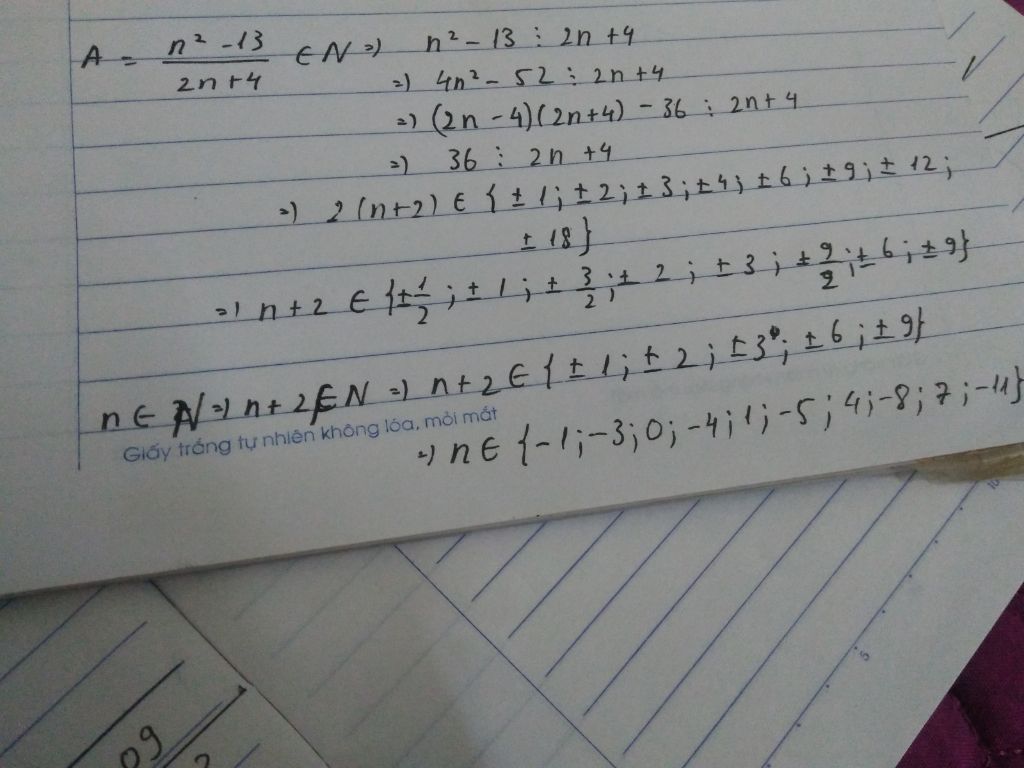 A = n² - 13 / 2n + 4 ∈ N => n² - 13 ⋮ 2n + 4
=> 4n² - 52 ⋮ 2n + 4
=> (2n - 4)(2n + 4) - 36 ⋮ 2n + 4
=> 36 ⋮ 2n + 4
=> 2(n+2) ∈ {±1; ±2; ±3; ±4; ±6; ±9; ±12;
±18}
=> n + 2 ∈ {±1/2; ±1; ±3/2; ±2; ±3; ±9/2; ±6; ±9}
n ∈ N => n + 2 ∈ N => n + 2 ∈ {±1; ±2; ±3; ±6; ±9}
Giấy trắng tự nhiên không lóa, mỏi mắt
=> n ∈ {-1; -3; 0; -4; 1; -5; 4; -8; 7; -11}
5
09